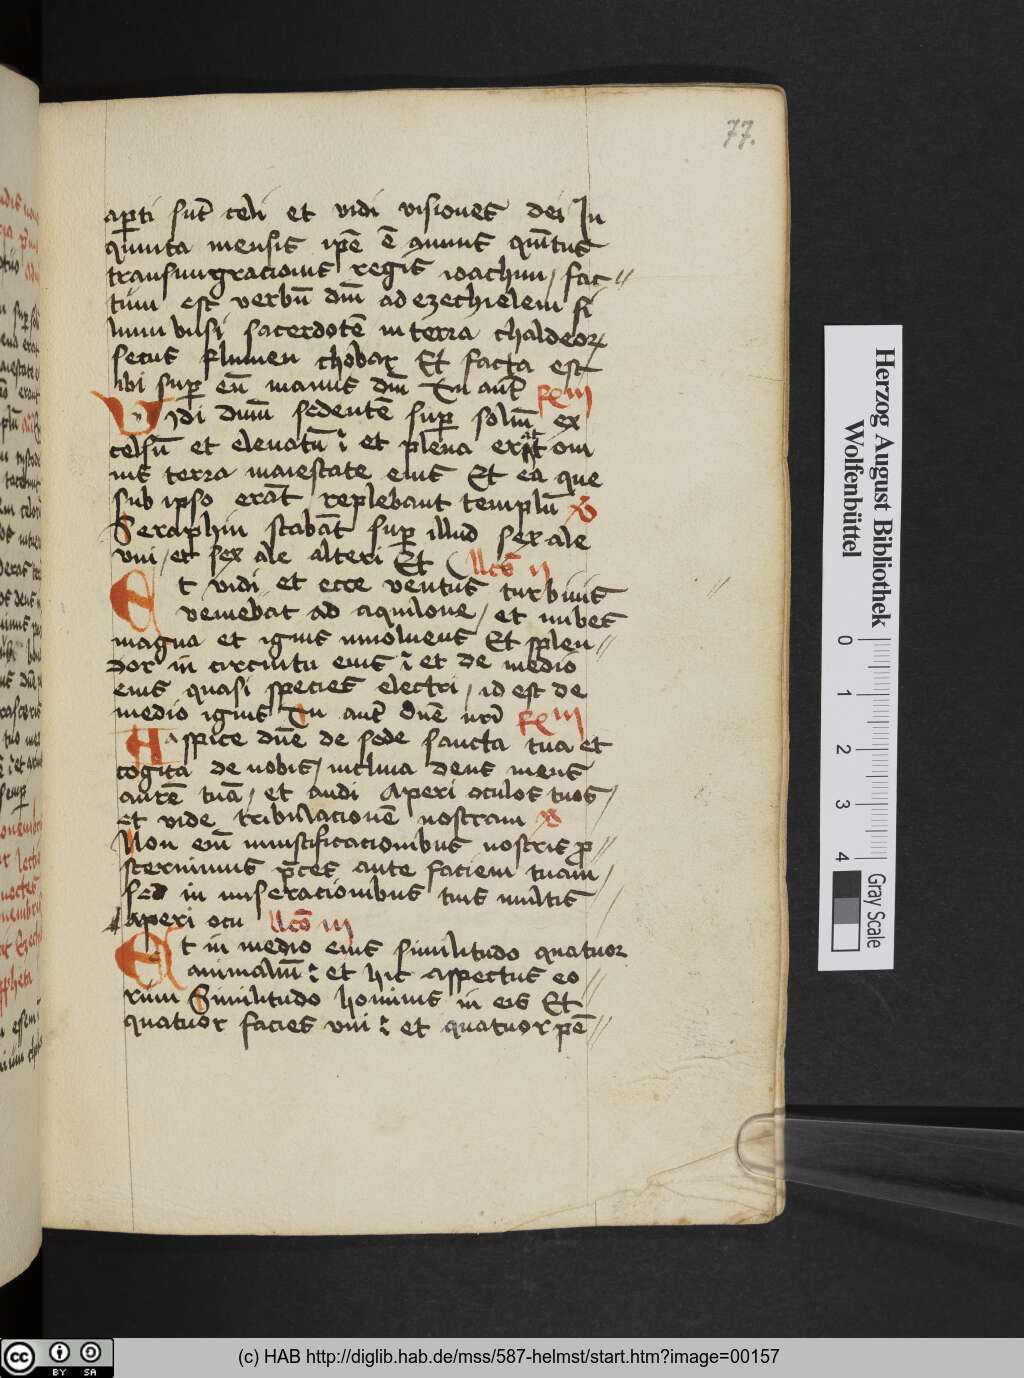 77.
aꝑti sūt celi et vidi visiones dei In
quinta mensis ipē ē annus qnītus
transmigracionis regis ioachim / fac-
tum est verbū dnī ad ezechielem fi
lium busi sacerdotē in terra chaldeoꝝ
secus flumen chobar Et facta est
ibi suꝑ eū manus dnī Tu aūt
Vidi dnm̄ sedentē suꝑ soliū ex
celsū et eleuatū et plena erat om
nis terra maiestate eius Et ea que
sub ipso erāt replebant templū
Seraphin stabāt suꝑ illud sex ale
vni / et sex ale alteri Et lc̄o ii
Et vidi et ecce ventus turbinis
veniebat ad aquilone / et nubes
magna et ignis inuoluens Et splen
dor in circuitu eius et de medio
eius quasi species electri / id est de
medio ignis Tu aūt dn̄e nr̄i
Aspice dn̄e de sede sancta tua et
cogita de nobis / inclina deus meus
aurē tuā / et audi Aperi oculos tuos /
et vide tribulacionē nostram
Non enī iustificacionibus nostris ꝓ
sternimus p̄ces ante faciem tuam /
sed in miseracionibus tuis multis
Aperi ocu lc̄o iii
Et in medio eius similitudo quatuor
animaliū et hic aspectus eo
rum Similitudo hominis in eis Et
quatuor facies vni et quatuor pē
Herzog August Bibliothek
Wolfenbüttel
0 1 2 3 4
Gray Scale
(c) HAB http://diglib.hab.de/mss/587-helmst/start.htm?image=00157
cc BY SA